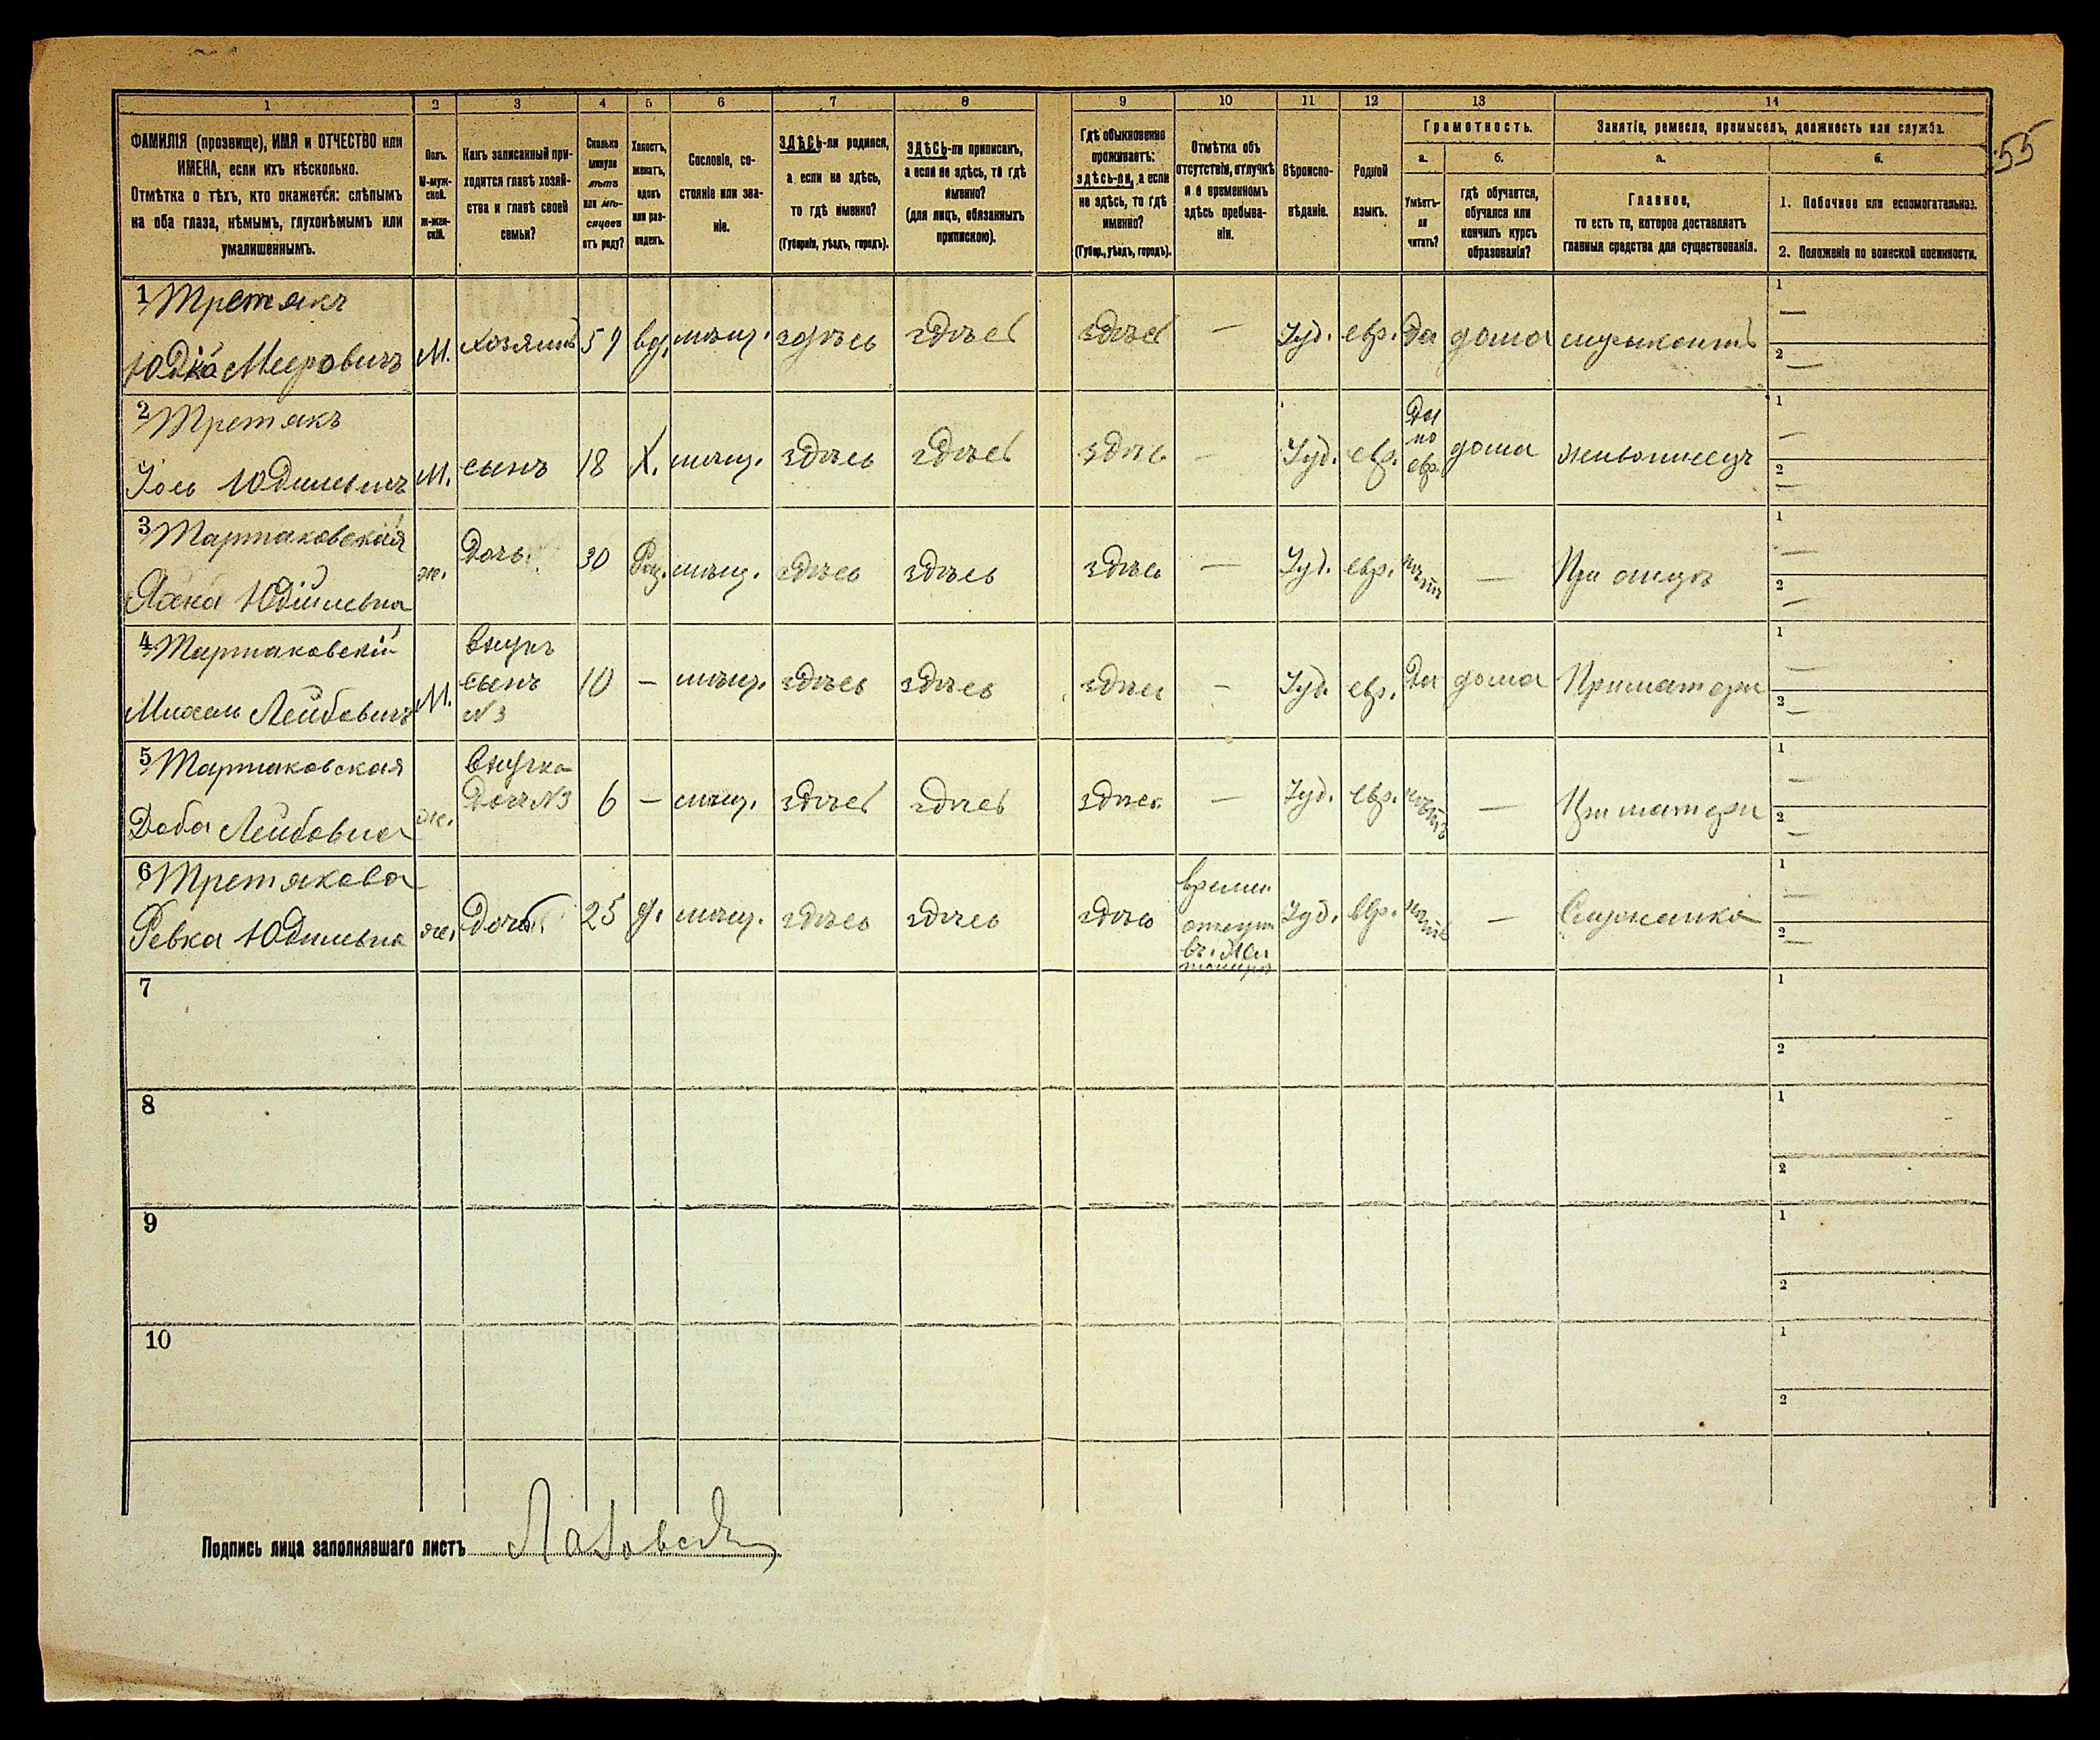 55
1 2 3 4 5 6 7 8 9 10 11 12 13 14
ФАМИЛІЯ (прозвище), ИМЯ и ОТЧЕСТВО или
ИМЕНА, если ихъ нѣсколько.
Отмѣтка о тѣхъ, кто окажется: слѣпымъ
на оба глаза, нѣмымъ, глухонѣмымъ или
умалишеннымъ.
Полъ.
М-муж-
ской.
Ж-жен-
скій.
Какъ записанный при-
ходится главѣ хозяй-
ства и главѣ своей
семьи?
Сколько
минуло
лѣтъ
или мѣ-
сяцевъ
отъ роду?
Холостъ,
женатъ,
вдовъ
или раз-
веденъ.
Сословіе, со-
стояніе или зва-
ніе.
ЗДѢСЬ-ли родился,
а если не здѣсь,
то гдѣ именно?
(Губернія, уѣздъ, городъ).
ЗДѢСЬ-ли приписанъ,
а если не здѣсь, то гдѣ
именно?
(для лицъ, обязанныхъ
припискою).
Гдѣ обыкновенно
проживаетъ:
здѣсь-ли, а если
не здѣсь, то гдѣ
именно?
(Губер., уѣздъ, городъ).
Отмѣтка объ
отсутствіи, отлучкѣ
и о временномъ
здѣсь пребыва-
ніи.
Вѣроиспо-
вѣданіе.
Родной
языкъ.
Грамотность.
а.
Умѣетъ-
ли
читать?
б.
гдѣ обучается,
обучался или
кончилъ курсъ
образованія?
Занятіе, ремесло, промыселъ, должность или служба.
а.
Главное,
то есть то, которое доставляетъ
главныя средства для существованія.
б.
1. Побочное или вспомогательное.
2. Положеніе по воинской повинности.
1 Третякъ
Мееровичъ М. Хозяинъ вд. мѣщ. здѣсь здѣсь здѣсь — Іуд. евр. Да дома музыкантъ 1 — 2 —
2 Третякъ
Іось Юдилевичъ М. сынъ 18 Х. мѣщ. здѣсь здѣсь здѣсь — Іуд. евр. Да по евр. дома живописецъ 1 — 2 —
3 Тартаковская
Юдилевна ж. Дочь 30 мѣщ. здѣсь здѣсь здѣсь — Іуд. евр. нѣтъ — При отцѣ 1 — 2 —
4 Тартаковскій
Лейбовичъ М. Внукъ сынъ N3 10 — мѣщ. здѣсь здѣсь здѣсь — Іуд. евр. Да дома При матери 1 — 2 —
5 Тартаковская
Доба Лейбовна ж. Внучка Дочь N3 6 — мѣщ. здѣсь здѣсь здѣсь — Іуд. евр. нѣтъ — При матери 1 — 2 —
6 Третякова
Ревка Юдилевна ж. Дочь 25 д. мѣщ. здѣсь здѣсь здѣсь времен. отсут. въ Іуд. евр. нѣтъ — Служанка 1 — 2 —
7 1 2
8 1 2
9 1 2
10 1 2
Подпись лица заполнявшаго листъ